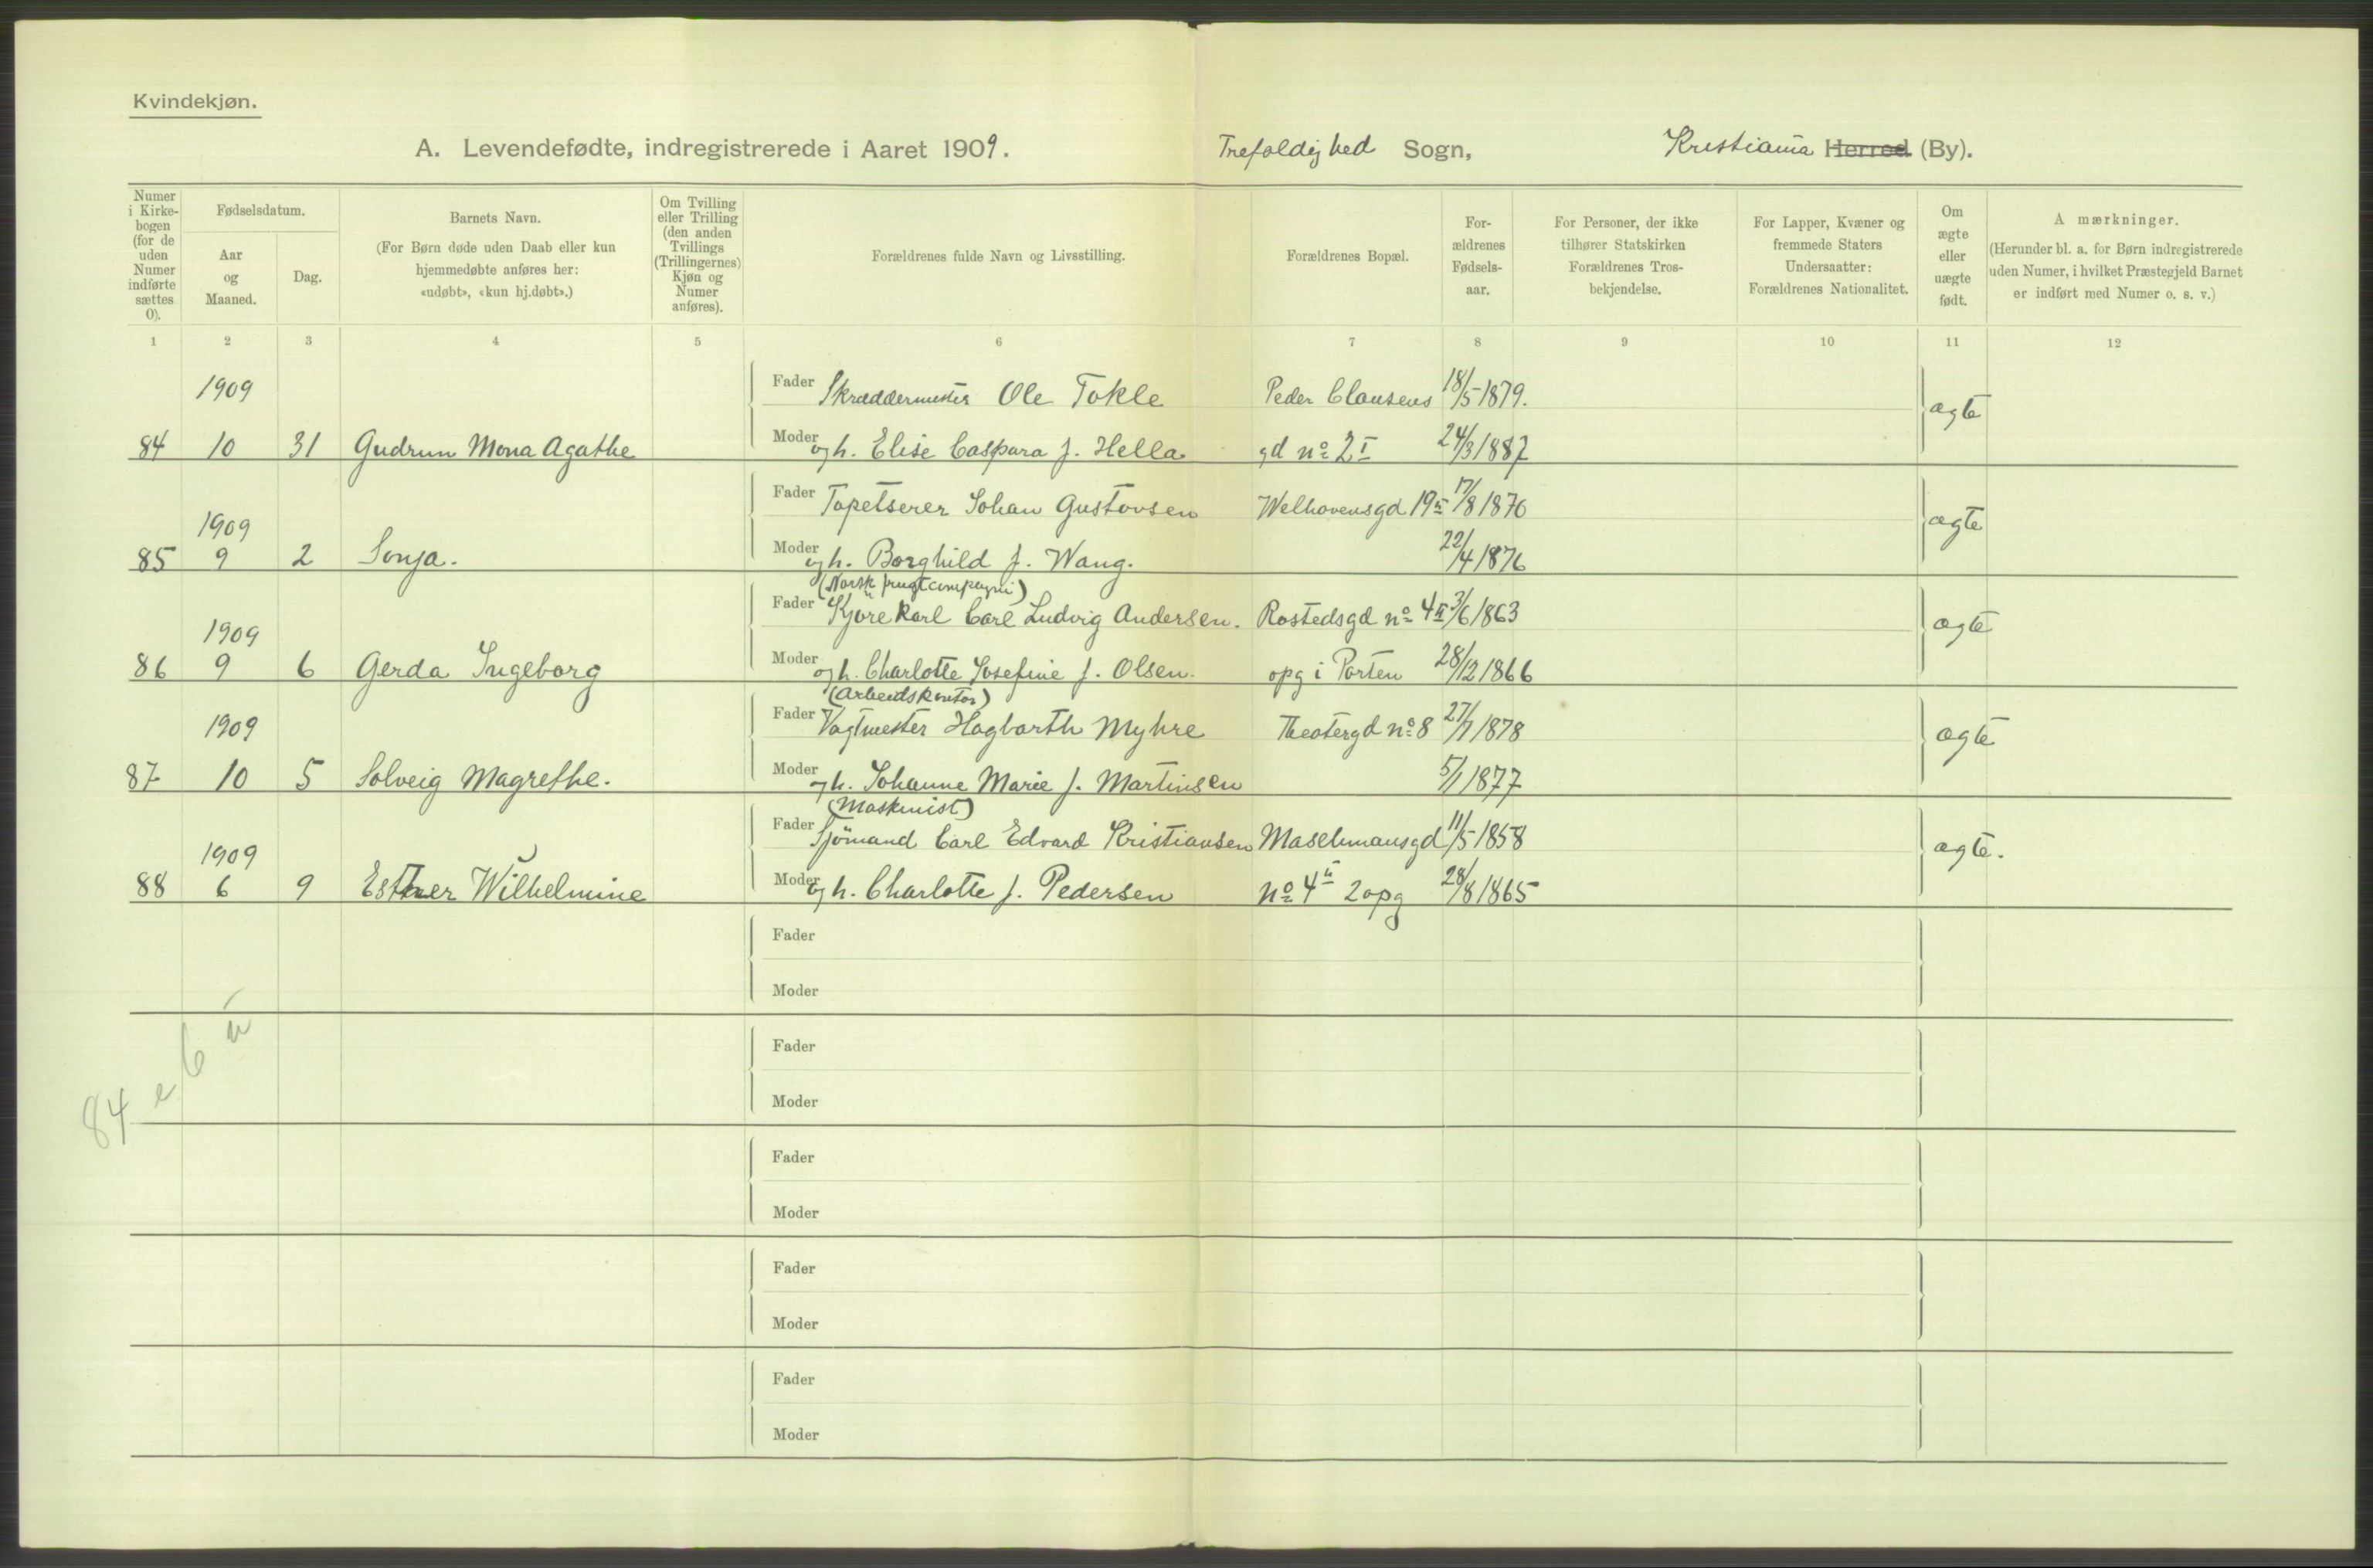 Kvindekjøn.
A. Levendefødte, indregistrerede i Aaret 1909. Trefoldighed Sogn, Kristiania Herred (By).
Numer i Kirkebogen (for de uden Numer indførte sættes 0).
Fødselsdatum.
Aar og Maaned.
Dag.
Barnets Navn.
(For Børn døde uden Daab eller kun hjemmedøbte anføres her: «udøbt», «kun hj.døbt».)
Om Tvilling eller Trilling (den anden Tvillings (Trillingernes) Kjøn og Numer anføres).
Forældrenes fulde Navn og Livsstilling.
Forældrenes Bopæl.
Forældrenes Fødselsaar.
For Personer, der ikke tilhører Statskirken Forældrenes Trosbekjendelse.
For Lapper, Kvæner og fremmede Staters Undersaatter: Forældrenes Nationalitet.
Om ægte eller uægte født.
A mærkninger.
(Herunder bl. a. for Børn indregistrerede uden Numer, i hvilket Præstegjeld Barnet er indført med Numer o. s. v.)
1 2 3 4 5 6 7 8 9 10 11 12
1909 Fader Skræddermester Ole Tokle Peder Clausens 18/5-1879. ægte
84 10 31 Gudrun Mona Agathe Moder og h. Elise Caspara f. Hella gd no 2 I 24/3 1887
1909 Fader Tapetserer Johan Gustavsen Welhavensgd 19 II 17/8 1876 ægte
85 9 2 Sonja. Moder og h. Borghild f. Wang. 22/4 1876
(Norsk frugtcompagni)
1909 Fader Kjørekarl Carl Ludvig Andersen. Rostedsgd no 4 II 3/6 1863 ægte
86 9 6 Gerda Ingeborg Moder og h. Charlotte Josefine f. Olsen. opg i Porten 28/12 1866
(Arbeidskontor)
1909 Fader Vagtmester Hagbarth Myhre Theatergd no 8 27/7 1878 ægte
87 10 5 Solveig Magrethe. Moder og h. Johanne Marie f. Martinsen 5/1 1877
(Maskinist)
1909 Fader Sjömand Carl Edvard Kristiansen Maschmansgd 11/5 1858 ægte.
88 6 9 Esther Wilhelmine Moder og h. Charlotte f. Pedersen no 4 II 2 opg 28/8 1865
Fader
Moder
Fader
Moder
84 e 6 u
Fader
Moder
Fader
Moder
Fader
Moder